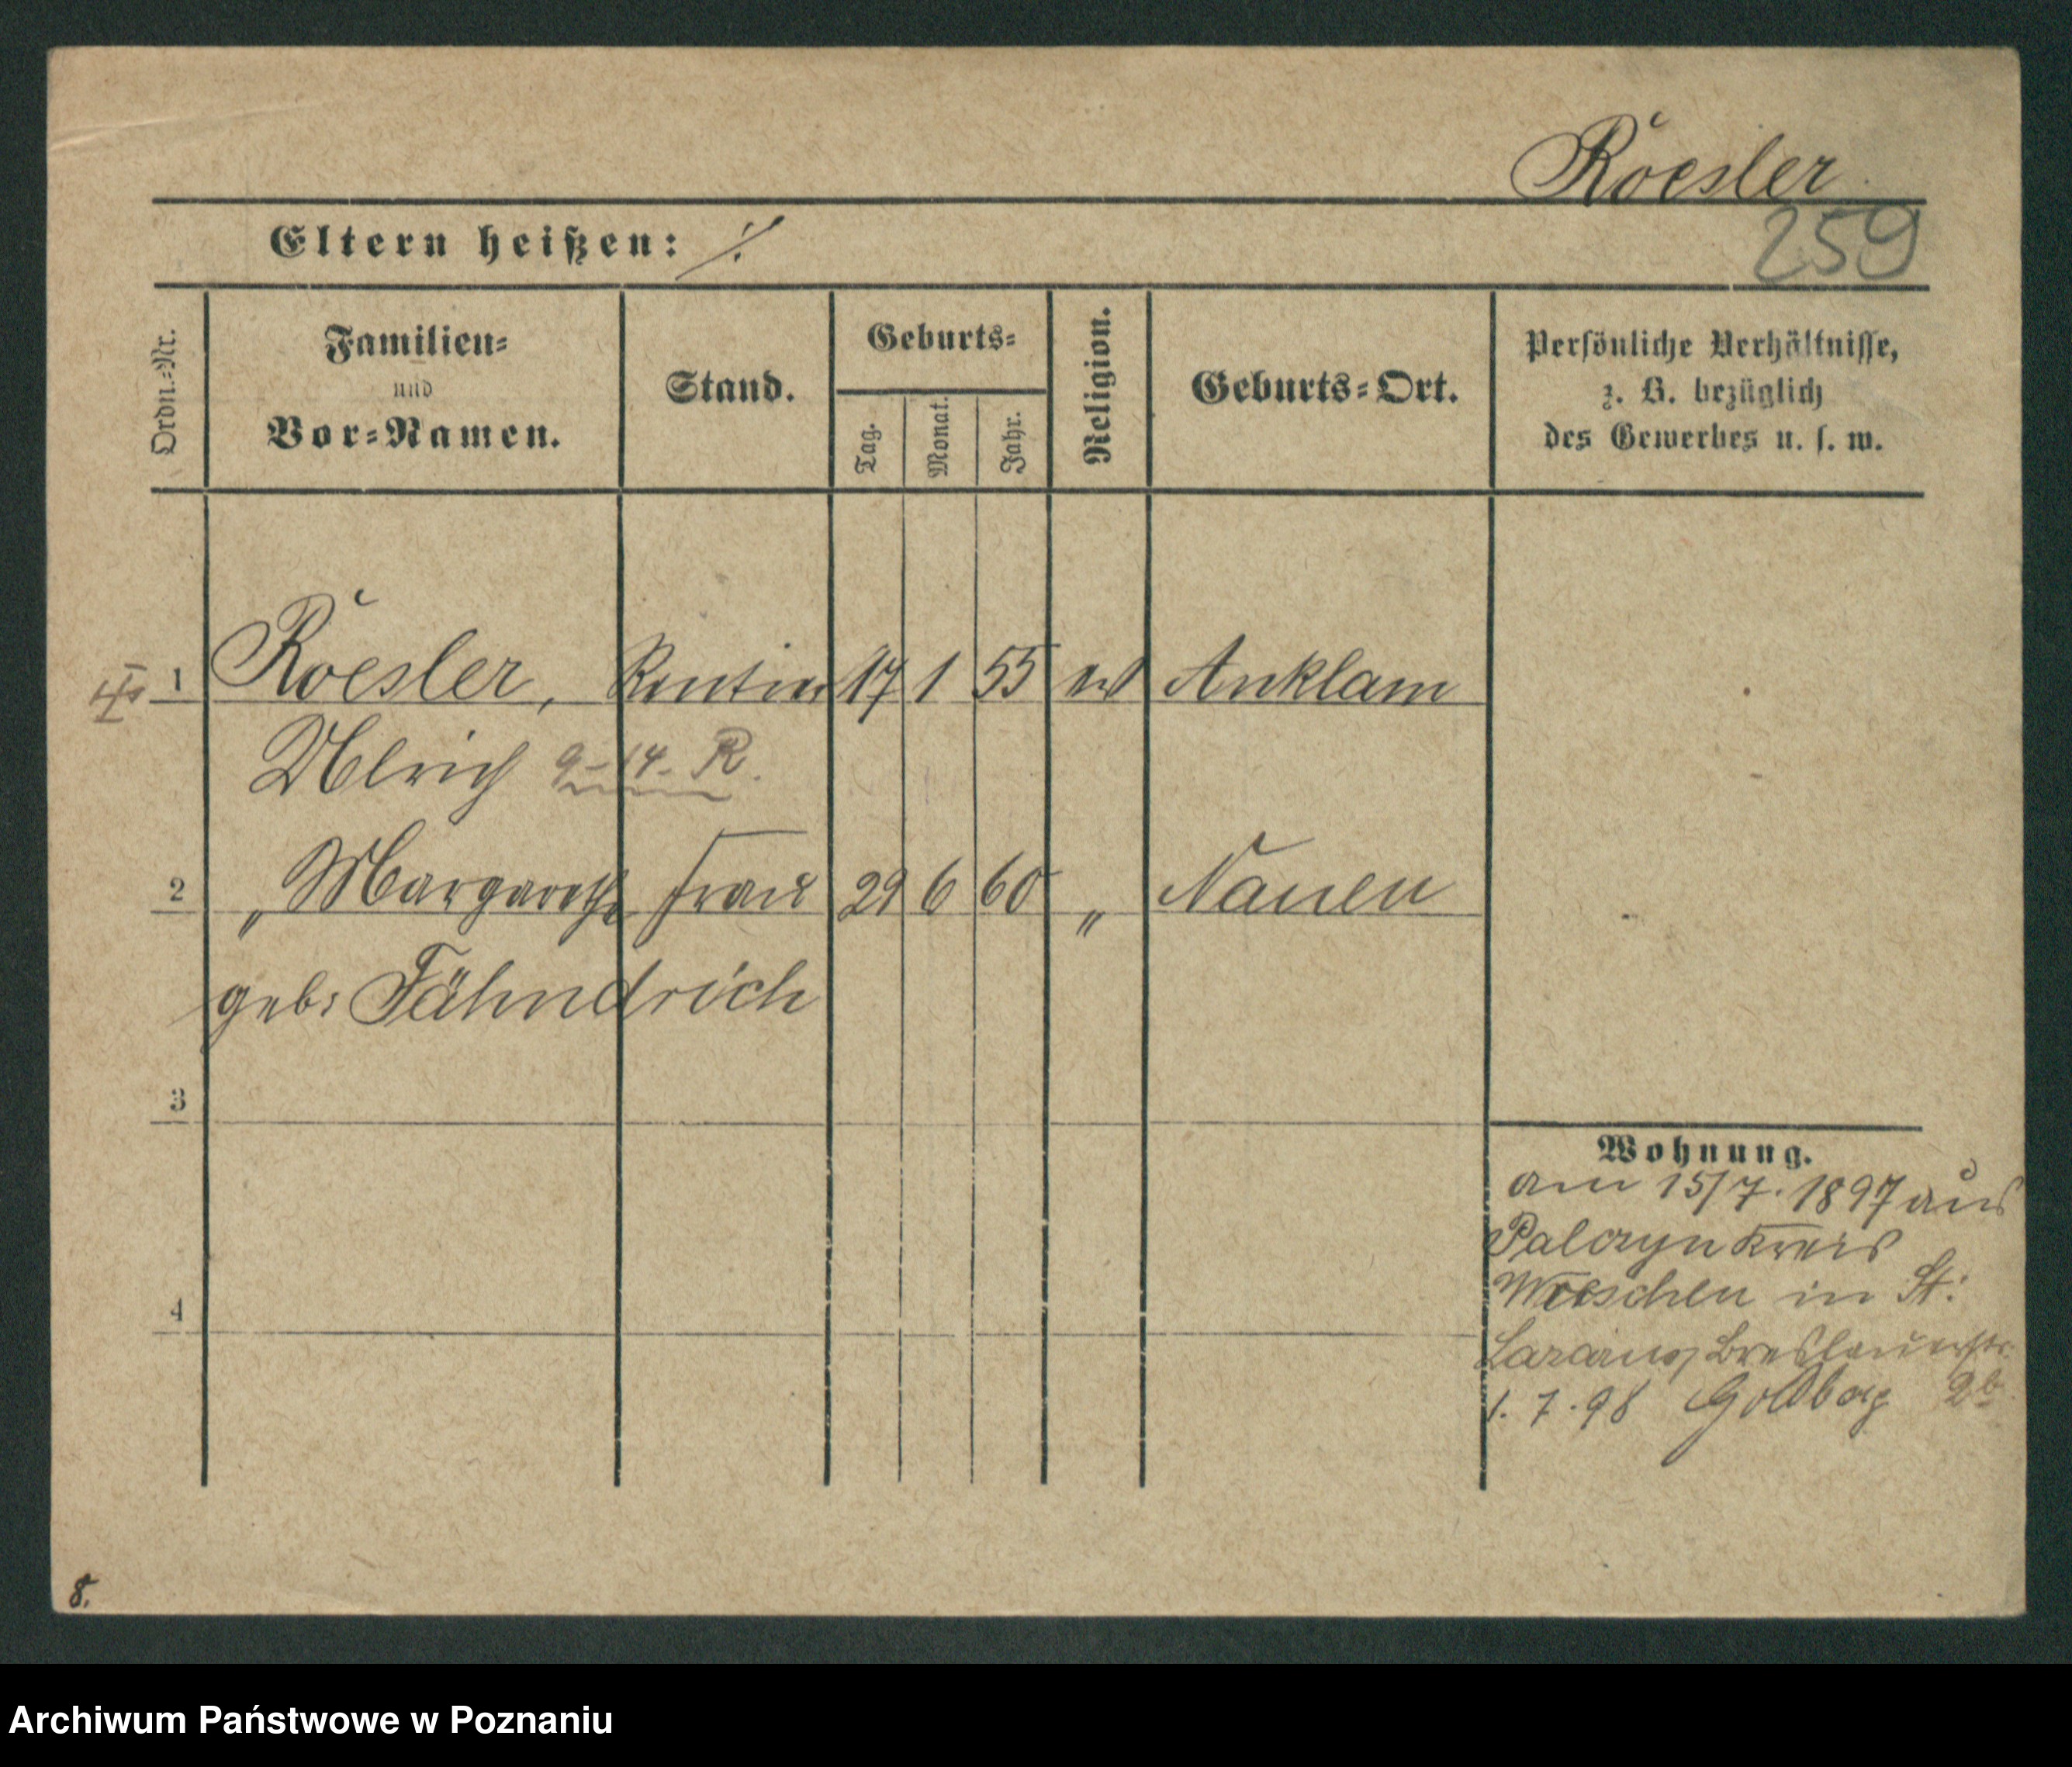 Roesler.
Eltern heißen: ·/·
259
Ordn.-Nr.
Familien-
und
Vor-Namen.
Stand.
Geburts-
Tag.
Monat.
Jahr.
Religion.
Geburts-Ort.
Persönliche Verhältnisse,
z. B. bezüglich
des Gewerbes u. s. w.
1 Roesler, Rentier 17 1 55 ev Anklam
Ulrich 9-14- R.
2 " Margarethe Frau 29 6 60 " Nauen
geb: Fähndrich
3
4
Wohnung.
am 15/7. 1897 aus
Palczyn Kreis
Wreschen in St:
Lazarus, Breslauerstr.
1. 7. 98 2b
8.
Archiwum Państwowe w Poznaniu